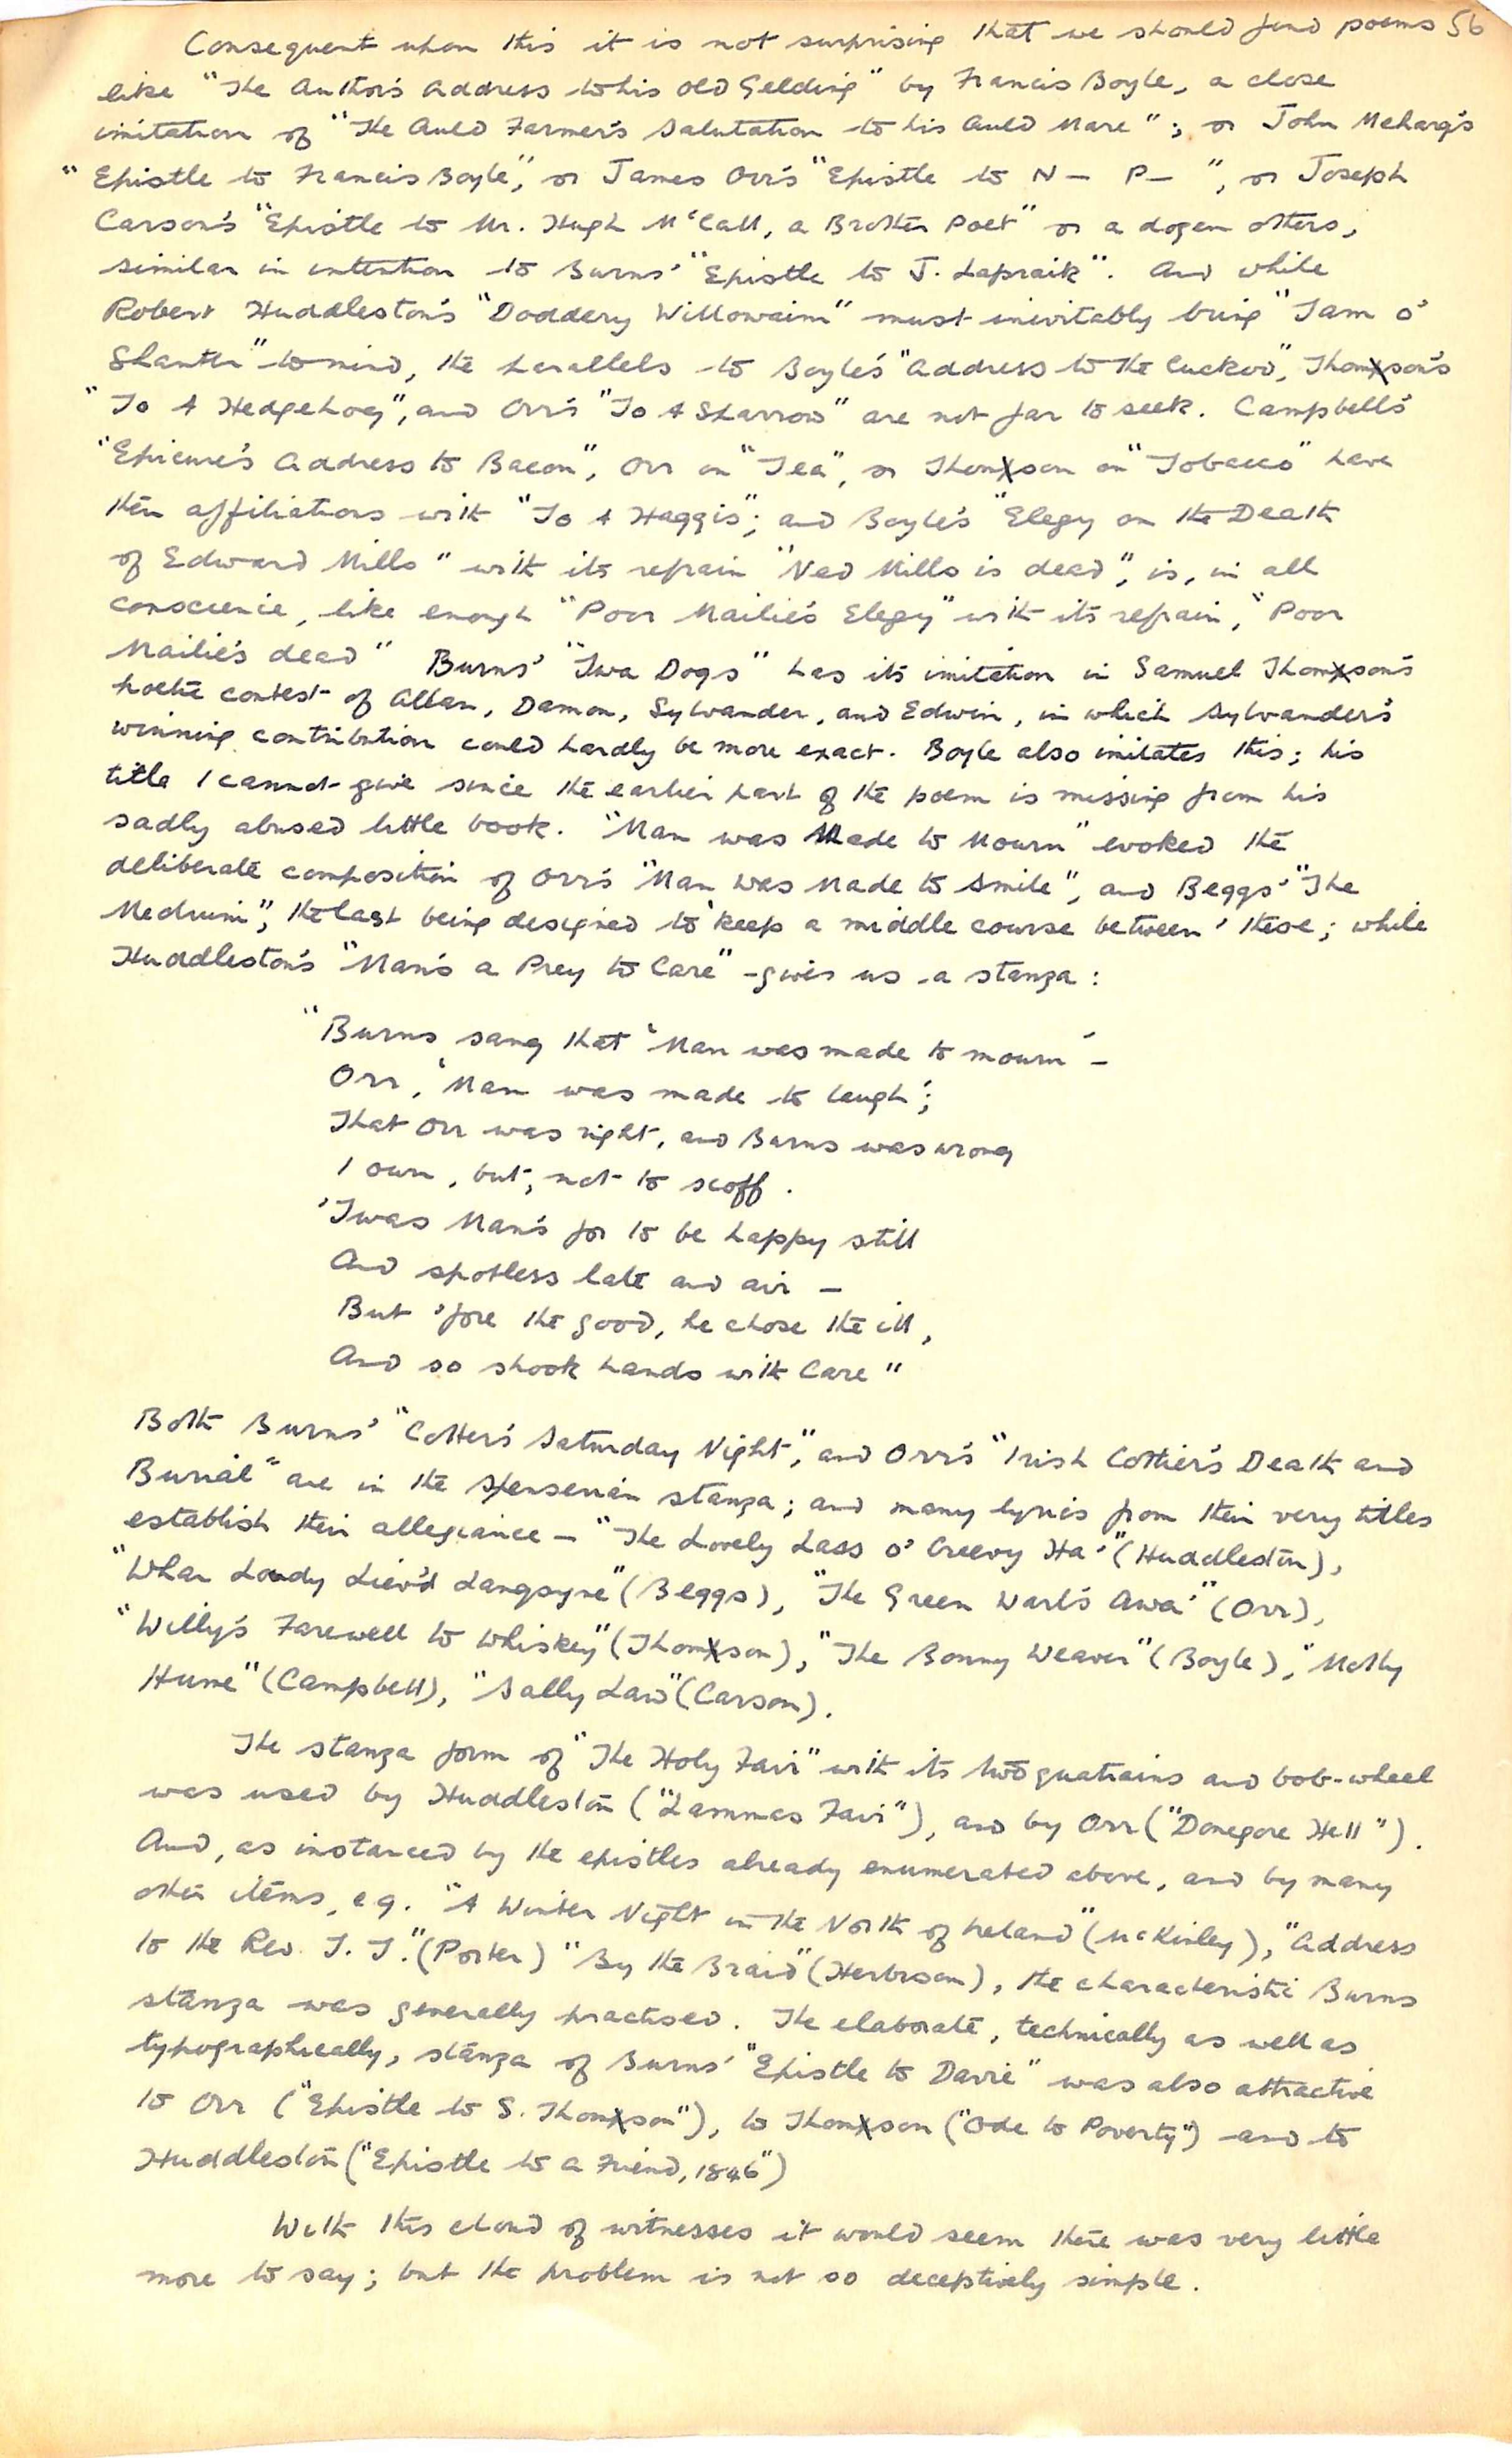 Consequent upon this it is not surprising that we should find poems 56
like "The Author's Address to his Old Gelding" by Francis Boyle, a close
imitation of "The Auld Farmer's Salutation to his Auld Mare"; or John Meharg's
"Epistle to Francis Boyle", or James Orr's "Epistle to N— P—", or Joseph
Carson's "Epistle to Mr. Hugh McCall, a Brother Poet" or a dozen others,
similar in intention to Burns' "Epistle to J. Lapraik". And while
Robert Huddleston's "Doddery Willowaim" must inevitably bring "Tam o'
Shanter" to mind, the parallels to Boyle's "Address to the Cuckoo", Thomson's
"To A Hedgehog", and Orr's "To A Sparrow" are not far to seek. Campbell's
"Epicure's Address to Bacon", Orr on "Tea", or Thomson on "Tobacco" have
their affiliations with "To A Haggis"; and Boyle's "Elegy on the Death
of Edward Mills" with its refrain "Ned Mills is dead", is, in all
conscience, like enough "Poor Mailie's Elegy" with its refrain, "Poor
Mailie's dead" Burns' "Twa Dogs" has its imitation in Samuel Thomson's
poetic contest of Allan, Damon, Sylvander, and Edwin, in which Sylvander's
winning contribution could hardly be more exact. Boyle also imitates this; his
title I cannot give since the earlier part of the poem is missing from his
sadly abused little book. "Man was Made to Mourn" evoked the
deliberate composition of Orr's "Man was Made to Smile", and Beggs' "The
Medium", the last being designed to 'keep a middle course between' these; while
Huddleston's "Man's a Prey to Care" gives us a stanza:
"Burns sang that 'Man was made to mourn' —
Orr, 'Man was made to laugh';
That Orr was right, and Burns was wrong
I own, but, not to scoff.
'Twas Man's for to be happy still
And spotless late and air —
But 'fore the good, he chose the ill,
And so shook hands with Care"
Both Burns' "Cotter's Saturday Night", and Orr's "Irish Cottier's Death and
Burial" are in the Spenserian stanza; and many lyrics from their very titles
establish their allegiance — "The Lovely Lass o' Creevy Ha'" (Huddleston),
"Whar Loudy Liev'd Langsyne" (Beggs), "The Green Warl's Awa'" (Orr),
"Willy's Farewell to Whiskey" (Thomson), "The Bonny Weaver" (Boyle), "Molly
Hume" (Campbell), "Sally Law" (Carson).
The stanza form of "The Holy Fair" with its two quatrains and bob-wheel
was used by Huddleston ("Lammas Fair"), and by Orr ("Donegore Hill").
And, as instanced by the epistles already enumerated above, and by many
other items, e.g. "A Winter Night in the North of Ireland" (McKinley), "Address
to the Rev. T. T." (Porter) "By the Braid" (Herbison), the characteristic Burns
stanza was generally practised. The elaborate, technically as well as
typographically, stanza of Burns' "Epistle to Davie" was also attractive
to Orr ("Epistle to S. Thomson"), to Thomson ("Ode to Poverty") and to
Huddleston ("Epistle to a Friend, 1846")
With this cloud of witnesses it would seem there was very little
more to say; but the problem is not so deceptively simple.